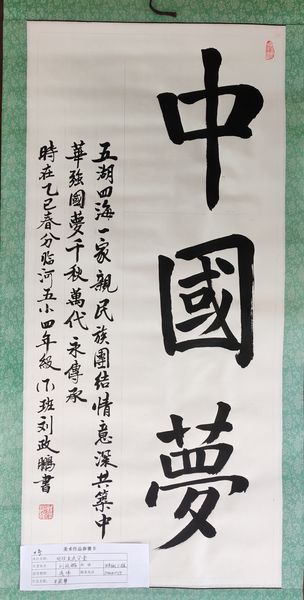 中國夢
五湖四海一家親民族團結情意深共築中
華強國夢千秋萬代永傳承
時在乙巳春分臨河五小四年級(1)班刘政鵬書
美术作品参赛卡